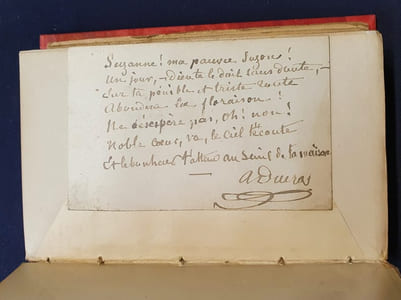 Suzanne! ma pauvre Suzon!
Un jour, – Dieu te le doit sans doute, –
Sur ta pénible et triste route
Abondera la floraison!
Ne désespère pas, oh! non!
Noble cœur, va, le ciel t'écoute
Et le bonheur t'attend au seuil de la maison